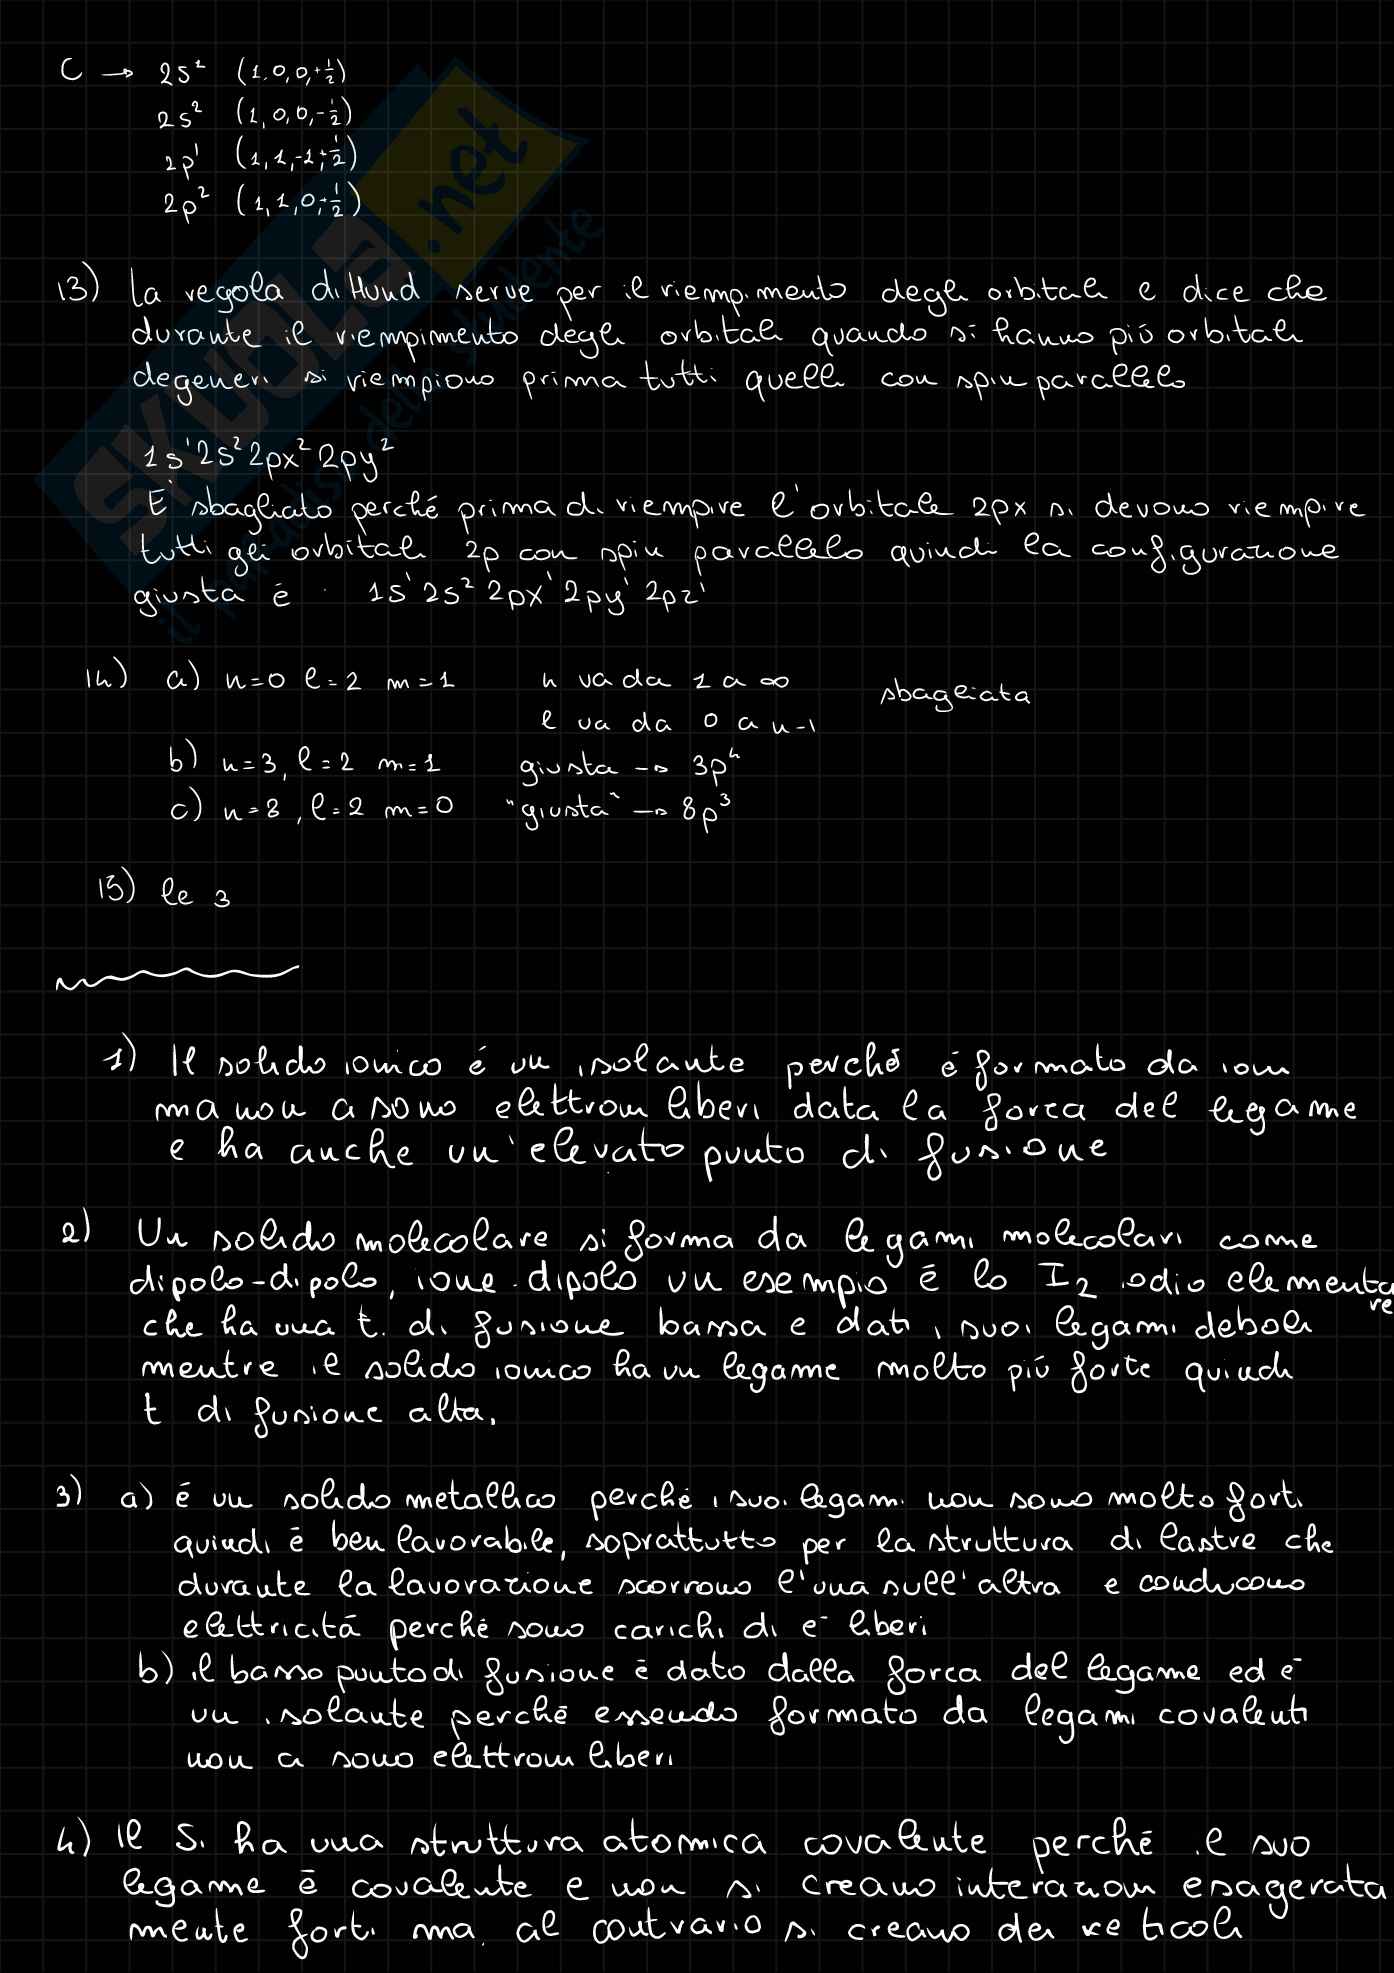 C → 2s¹ (1,0,0,+½)
2s² (1,0,0,-½)
2p¹ (1,1,-1,+½)
2p² (1,1,0,+½)
13) La regola di Hund serve per il riempimento degli orbitali e dice che
durante il riempimento degli orbitali quando si hanno più orbitali
degeneri si riempiono prima tutti quelli con spin parallelo
1s¹ 2s² 2px² 2py²
E' sbagliato perché prima di riempire l'orbitale 2px si devono riempire
tutti gli orbitali 2p con spin parallelo quindi la configurazione
giusta è 1s¹ 2s² 2px¹ 2py¹ 2pz¹
14) a) n=0 l=2 m=1 n va da 1 a ∞ sbagliata
l va da 0 a n-1
b) n=3, l=2 m=1 giusta → 3p⁴
c) n=8, l=2 m=0 "giusta" → 8p³
15) le 3
1) Il solido ionico é un isolante perché é formato da ioni
ma non ci sono elettroni liberi data la forza del legame
e ha anche un'elevato punto di fusione
2) Un solido molecolare si forma da legami molecolari come
dipolo-dipolo, ione-dipolo un esempio é lo I₂ iodio elementa
re
che ha una t. di fusione bassa e dati i suoi legami deboli
mentre il solido ionico ha un legame molto più forte quindi
t di fusione alta.
3) a) é un solido metallico perché i suoi legami non sono molto forti
quindi é ben lavorabile, soprattutto per la struttura di lastre che
durante la lavorazione scorrono l'una sull'altra e conducono
elettricità perché sono carichi di e⁻ liberi
b) il basso punto di fusione é dato dalla forza del legame ed é
un isolante perché essendo formato da legami covalenti
non ci sono elettroni liberi
4) Il Si ha una struttura atomica covalente perché il suo
legame é covalente e non si creano interazioni esagerata
mente forti ma al contrario si creano dei reticoli
SKUOLA.net
il paradiso dello studente